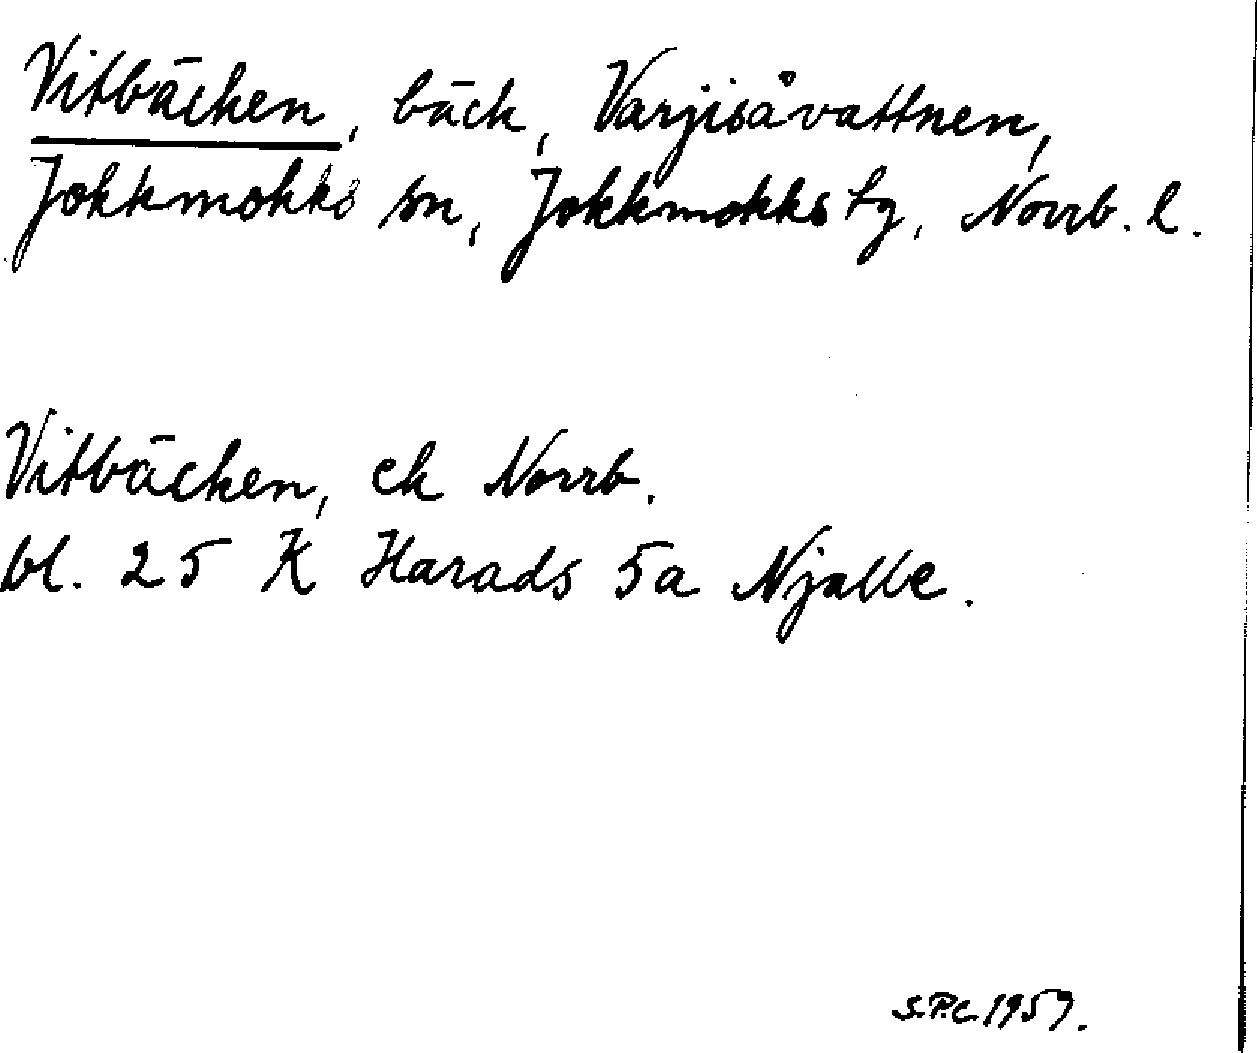 Vitbäcken, bäck, Varjisåvattnen,
Jokkmokks sn, Jokkmokks tg, Norrb. l.
Vitbäcken, ek Norrb.
bl. 25 K Harads 5a Njalle.
S.P.C. 1957.